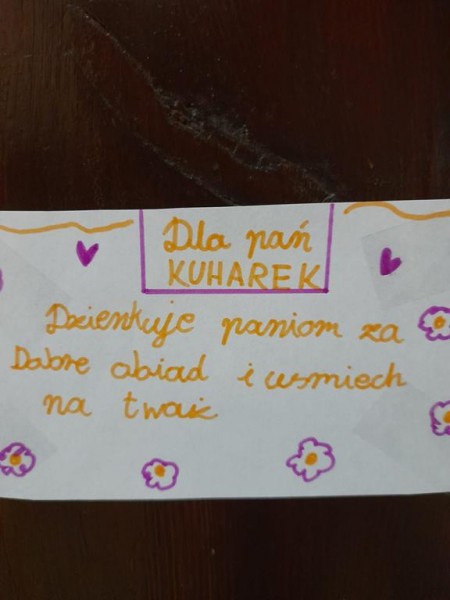 Dla pań
KUHAREK
Dzienkuje paniom za
Dobre obiad i usmiech
na twaiż